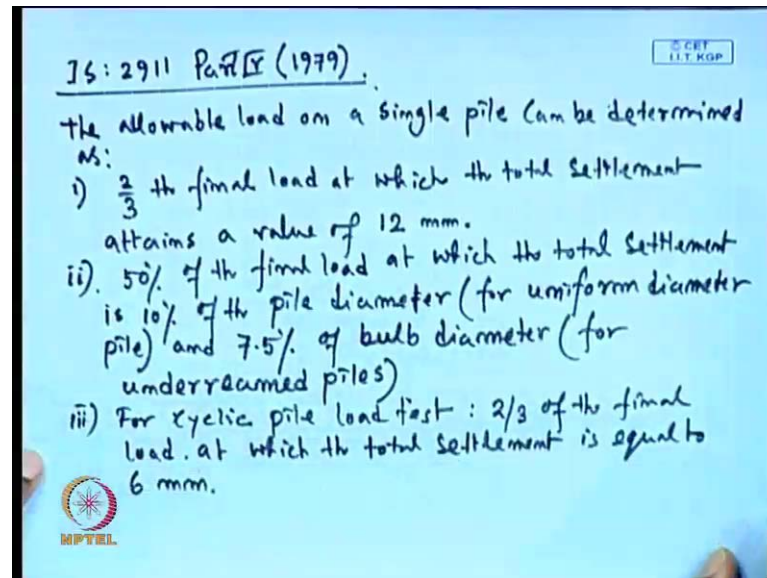 IS : 2911 Part IV (1979).
© CET
I.I.T. KGP
The allowable load on a single pile can be determined
as:
i) 2/3 th final load at which th total settlement
attains a value of 12 mm.
ii). 50% of th final load at which the total settlement
is 10% of th pile diameter (for uniform diameter
pile) and 7.5% of bulb diameter (for
underreamed piles)
iii) For cyclic pile load test : 2/3 of the final
load. at which th total settlement is equal to
6 mm.
NPTEL